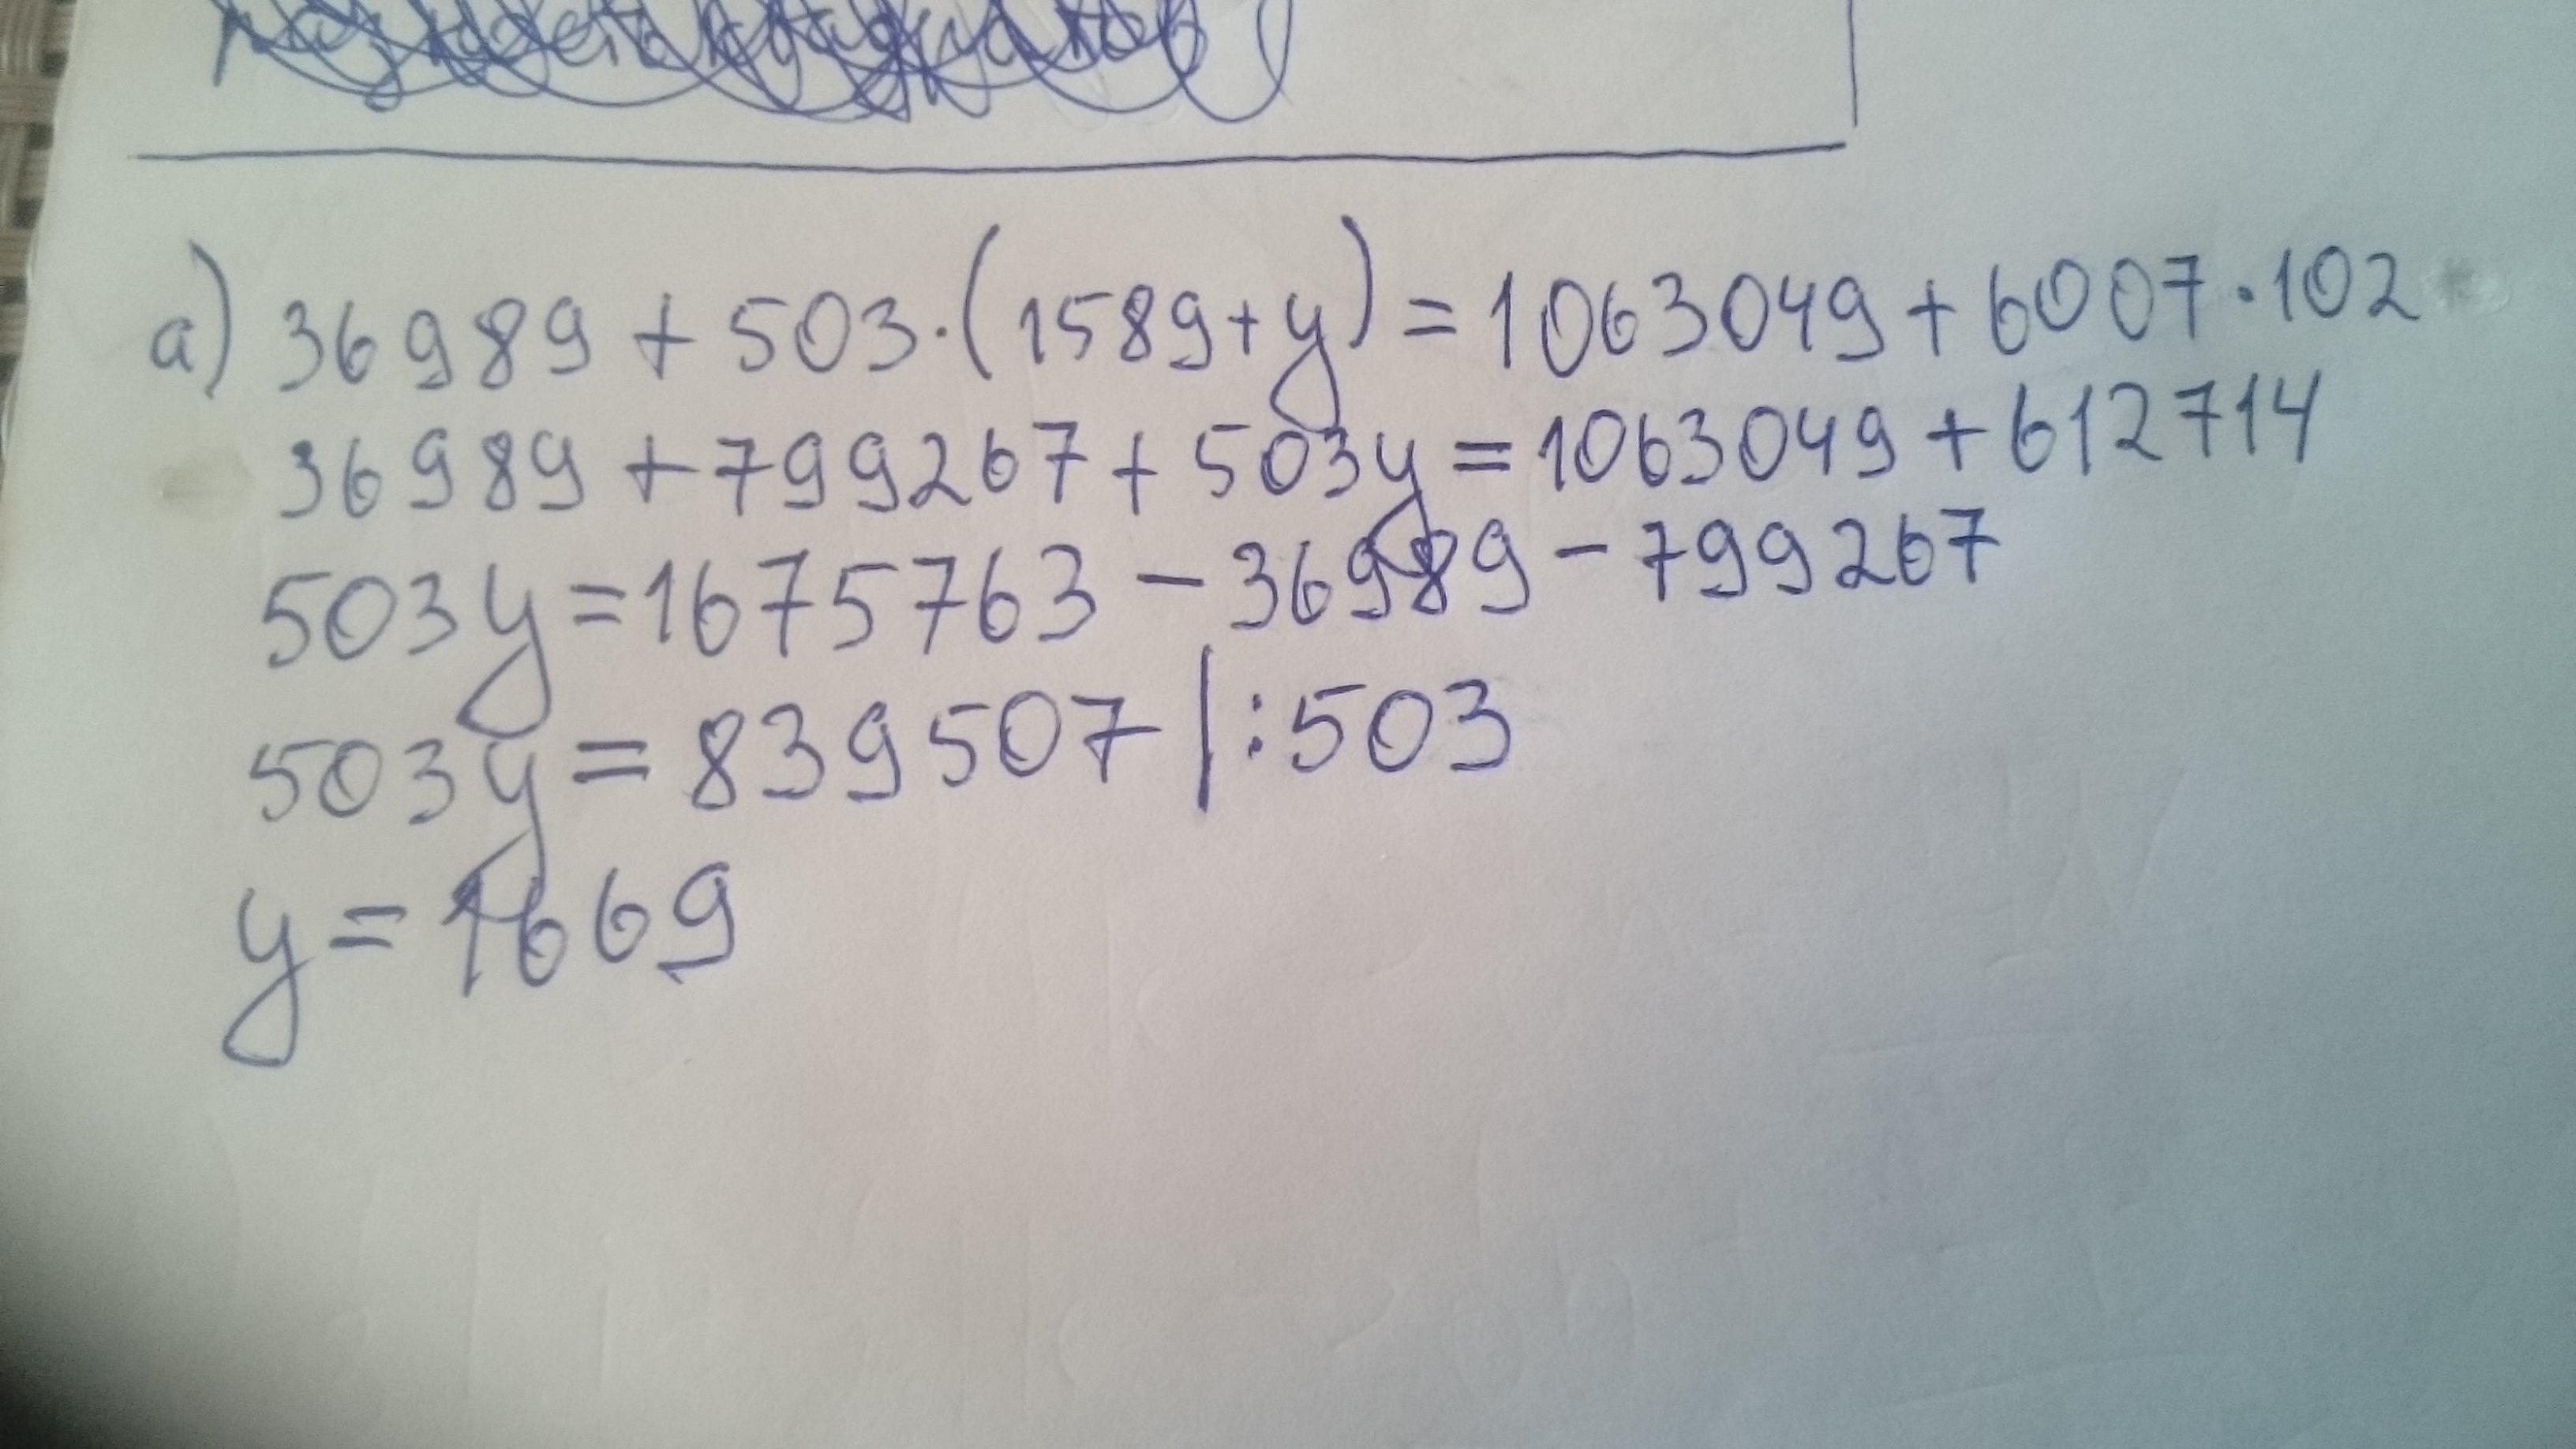 а) 36989 + 503·(1589+y) = 1063049 + 6007·102
36989 + 799267 + 503y = 1063049 + 612714
503y = 1675763 − 36989 − 799267
503y = 839507 |:503
y = 1669